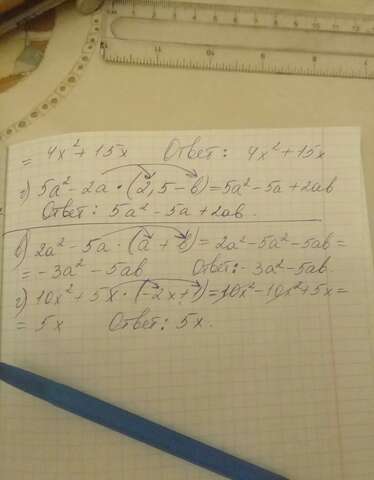 = 4x² + 15x Ответ: 4x² + 15x
г) 5a² - 2a · (2,5 - b) = 5a² - 5a + 2ab
Ответ: 5a² - 5a + 2ab.
в) 2a² - 5a · (a + b) = 2a² - 5a² - 5ab =
= -3a² - 5ab Ответ: -3a² - 5ab.
г) 10x² + 5x · (-2x + 1) = 10x² - 10x² + 5x =
= 5x Ответ: 5x.